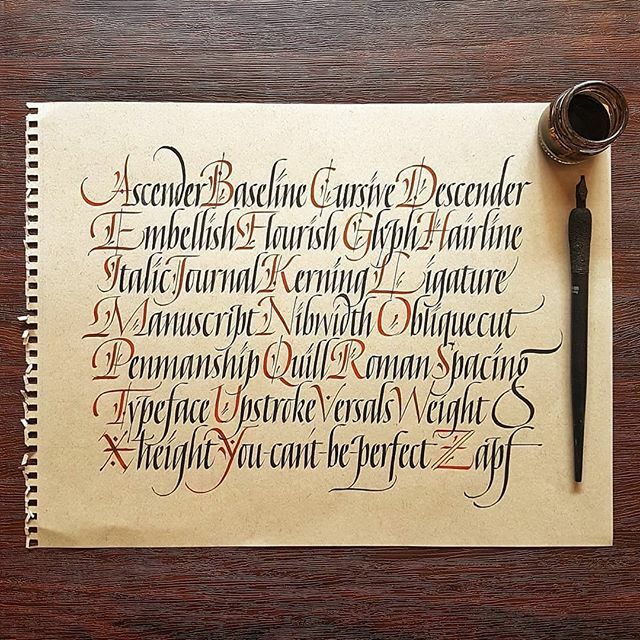 Ascender Baseline Cursive Descender
Embellish Flourish Glyph Hairline
Italic Journal Kerning Ligature
Manuscript Nibwidth Oblique cut
Penmanship Quill Roman Spacing
Typeface Upstroke Versals Weight &
X height You-can't-be-perfect Zapf